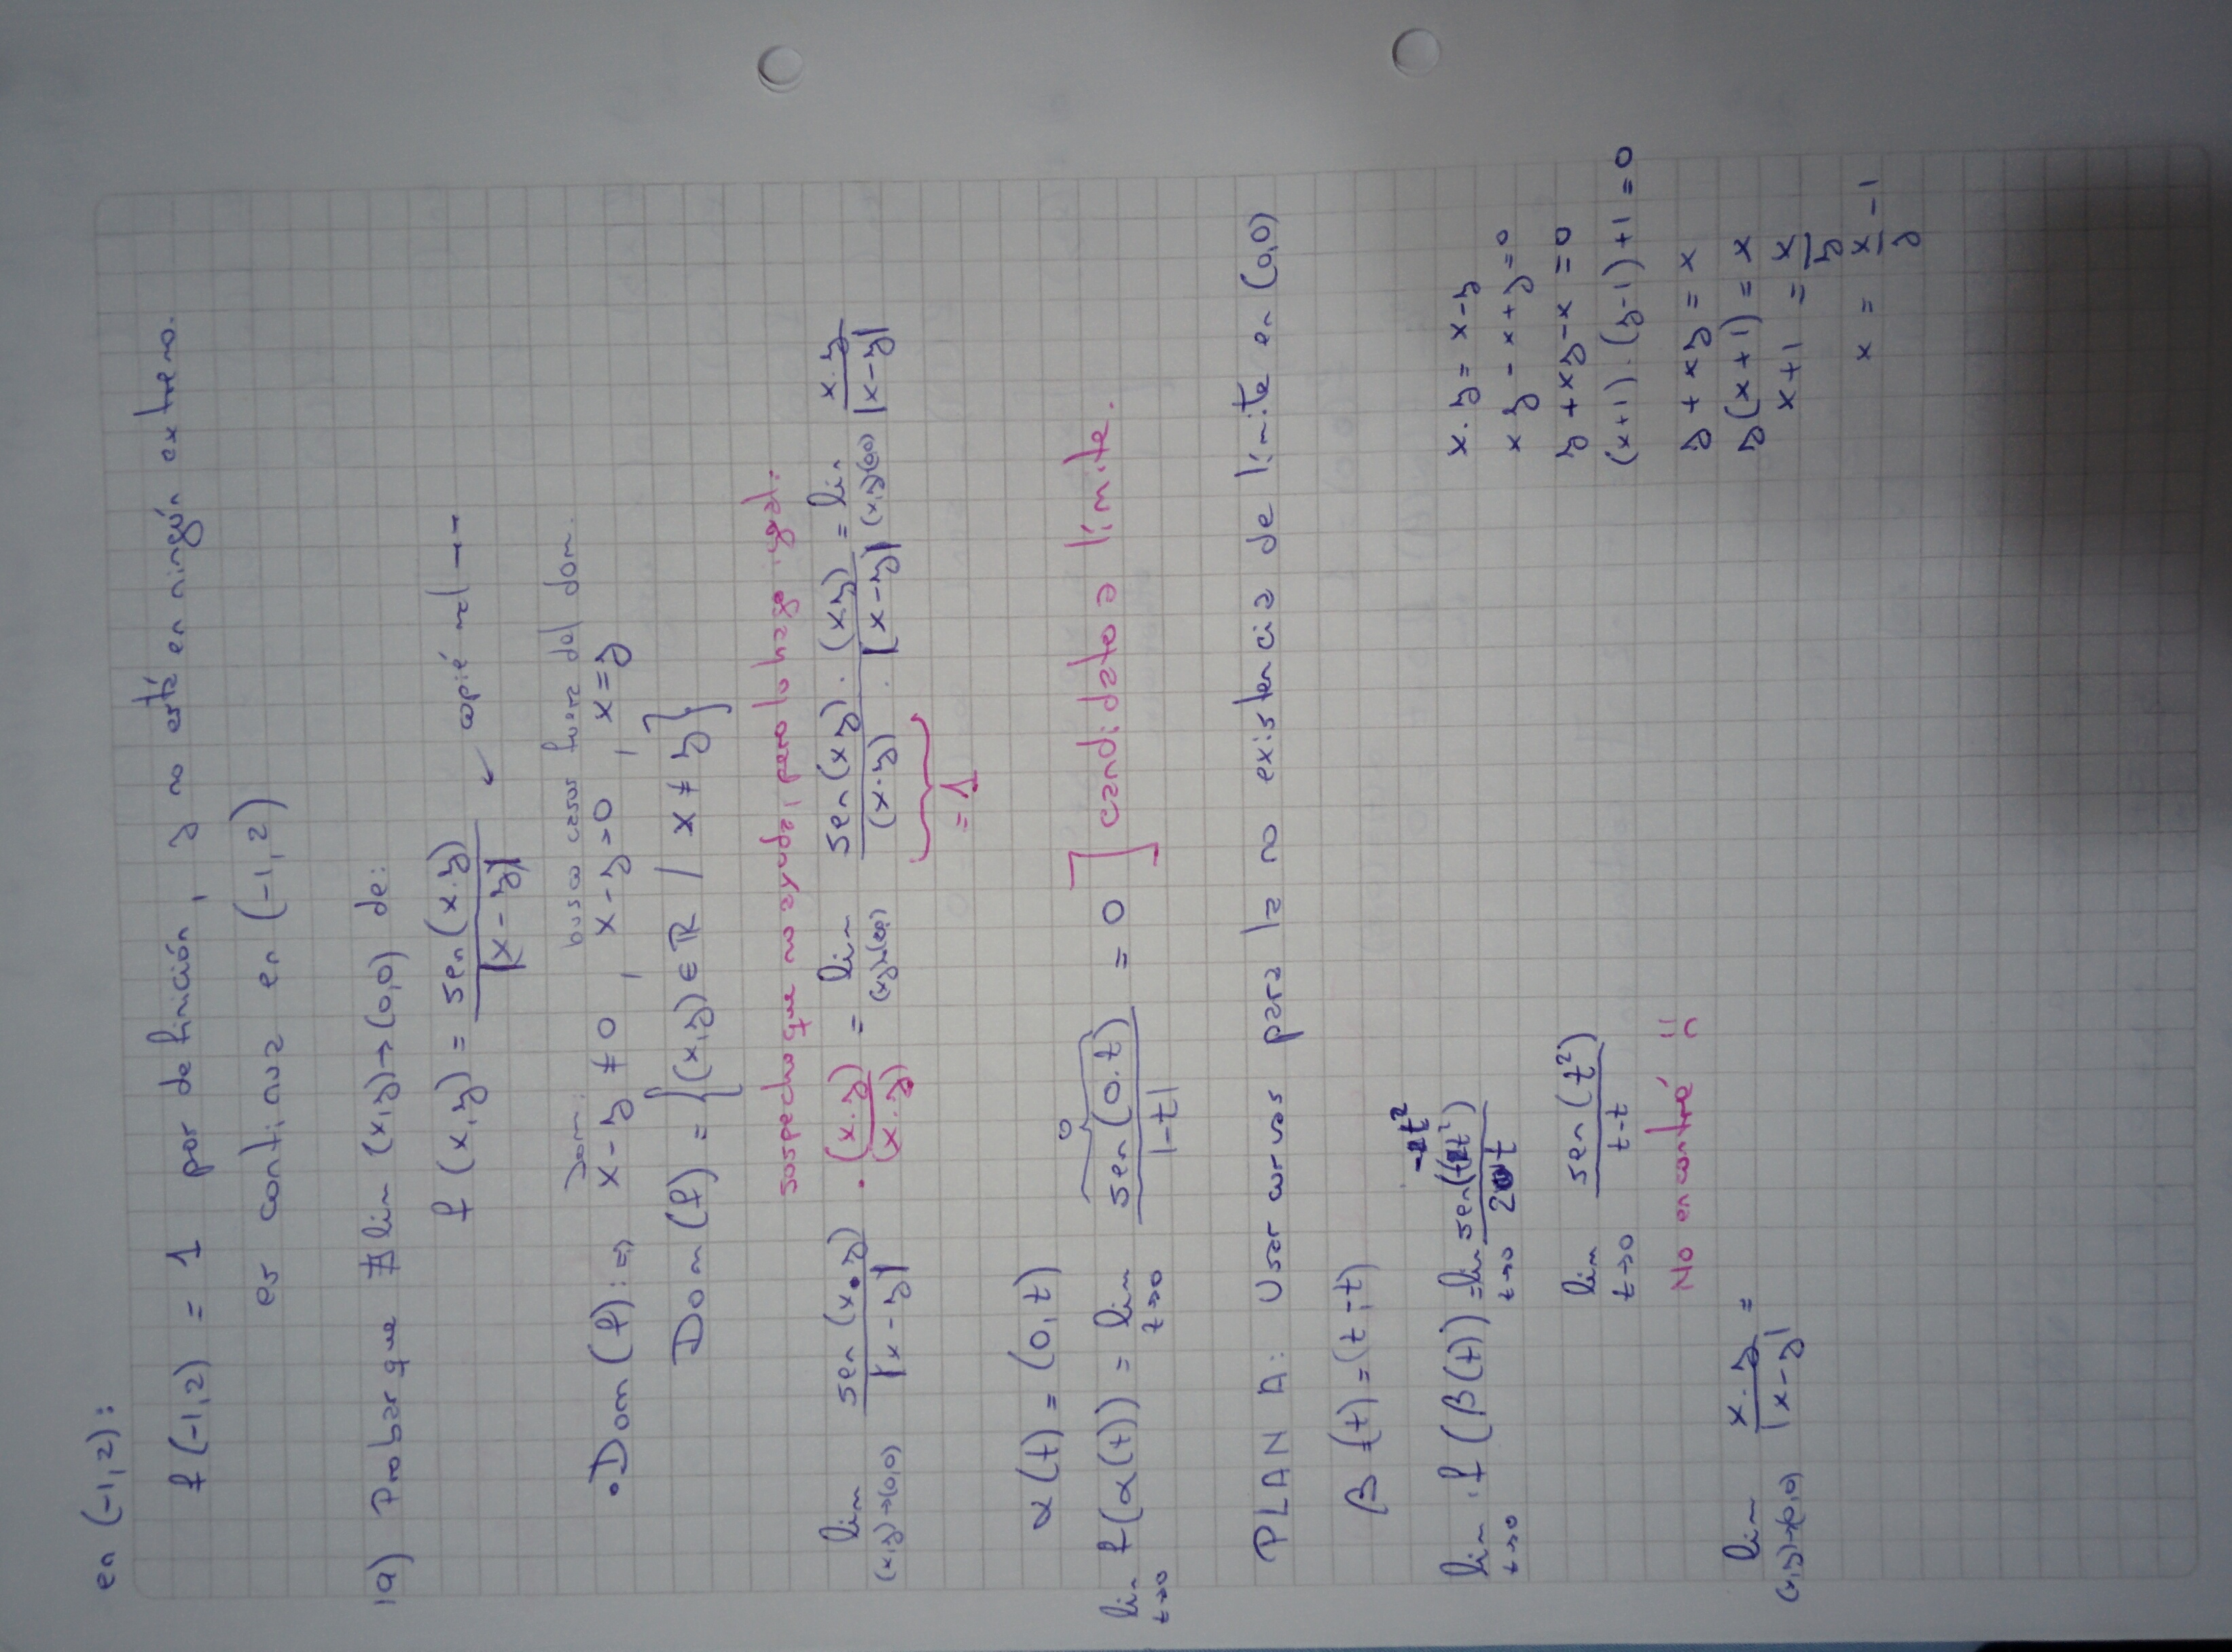 en (-1,2):
f(-1,2) = 1 por definición, y no está en ningún extremo.
es continua en (-1,2)
19) Probar que ∄ lim (x,y)→(0,0) de:
f(x,y) = sen(x.y) / |x-y| ↙ copié mal --
Dom: busco casos fuera del dom.
•Dom(f): => x-y ≠ 0 , x-y=0 , x=y
Dom(f) = {(x,y) ∈ ℝ / x ≠ y}
sospecho que no ayuda, pero lo hago igual.
lim (x,y)→(0,0) sen(x.y) / |x-y| . (x.y)/(x.y) = lim (x,y)→(0,0) sen(xy) . (x.y) / (x.y) . |x-y| = lim (x,y)→(0,0) x.y / |x-y|
= 1
α(t) = (0,t)
0
lim t→0 f(α(t)) = lim t→0 sen(0.t) / |-t| = 0 ] candidato a límite.
PLAN A: Usar curvas para la no existencia de límite en (0,0)
β(t) = (t,-t)
-t²
lim t→0 f(β(t)) = lim t→0 sen(-t²) / 2t
lim t→0 sen(t²) / t-t
No encontré :(
lim (x,y)→(0,0) x.y / |x-y| =
x.y = x-y
xy - x+y = 0
y +xy-x = 0
(x+1).(y-1)+1 = 0
y + xy = x
y(x+1) = x
x+1 = x/y
x = x/y - 1